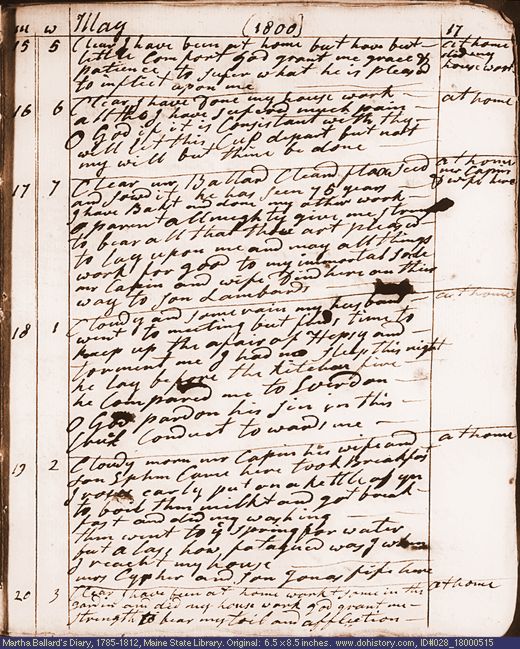 m w May (1800) 17
15 5 Clear I have been at home but have but at home
little Comfort god grant me grace &
patience to super what he is pleasd house work
to inflict upon me
16 6 Clear I have done my house work at home
altho I have suferd much pain
O God if it is Consistant with thy
will let this cup depart but not
my will but thine be done
17 7 Clear mr Ballard Cleand flax seed at home
and sowd it he has seen 75 years mr Capin
I have Bakt and done my other work & wife here
O parent allmughty give me strength
to bear all that thou art pleasd
to lay upon me and may all things
work for good to my immortal sole
mr Capin and wife Dind here on thier
way to son Lambards
18 1 Cloudy and some rain my husband at home
went to meeting but finds time to
keep up the afair of Hepsy and
torment me I had no sleep this night
he lay before the Kitchen fire
he Compared me to
O God pardon his sin in this
Conduct to wards me
19 2 Cloudy morn mr Capin his wife and at home
son Ephm Came here took Breakfast
I rose early put on a kettle of
to boil then milkt and got break-
fast and did my washing
then went to ye spring for water
but alass how fatagued was I when
I reacht my house
mrs Cypher and son Jonas pipe here
20 3 Clear I have been at home workt some in the at home
gardin and did my house work god grant me
strength to bear my toil and affliction
Martha Ballard's Diary, 1785-1812, Maine State Library. Original: 6.5 x 8.5 inches. www.dohistory.com, ID#028_18000515